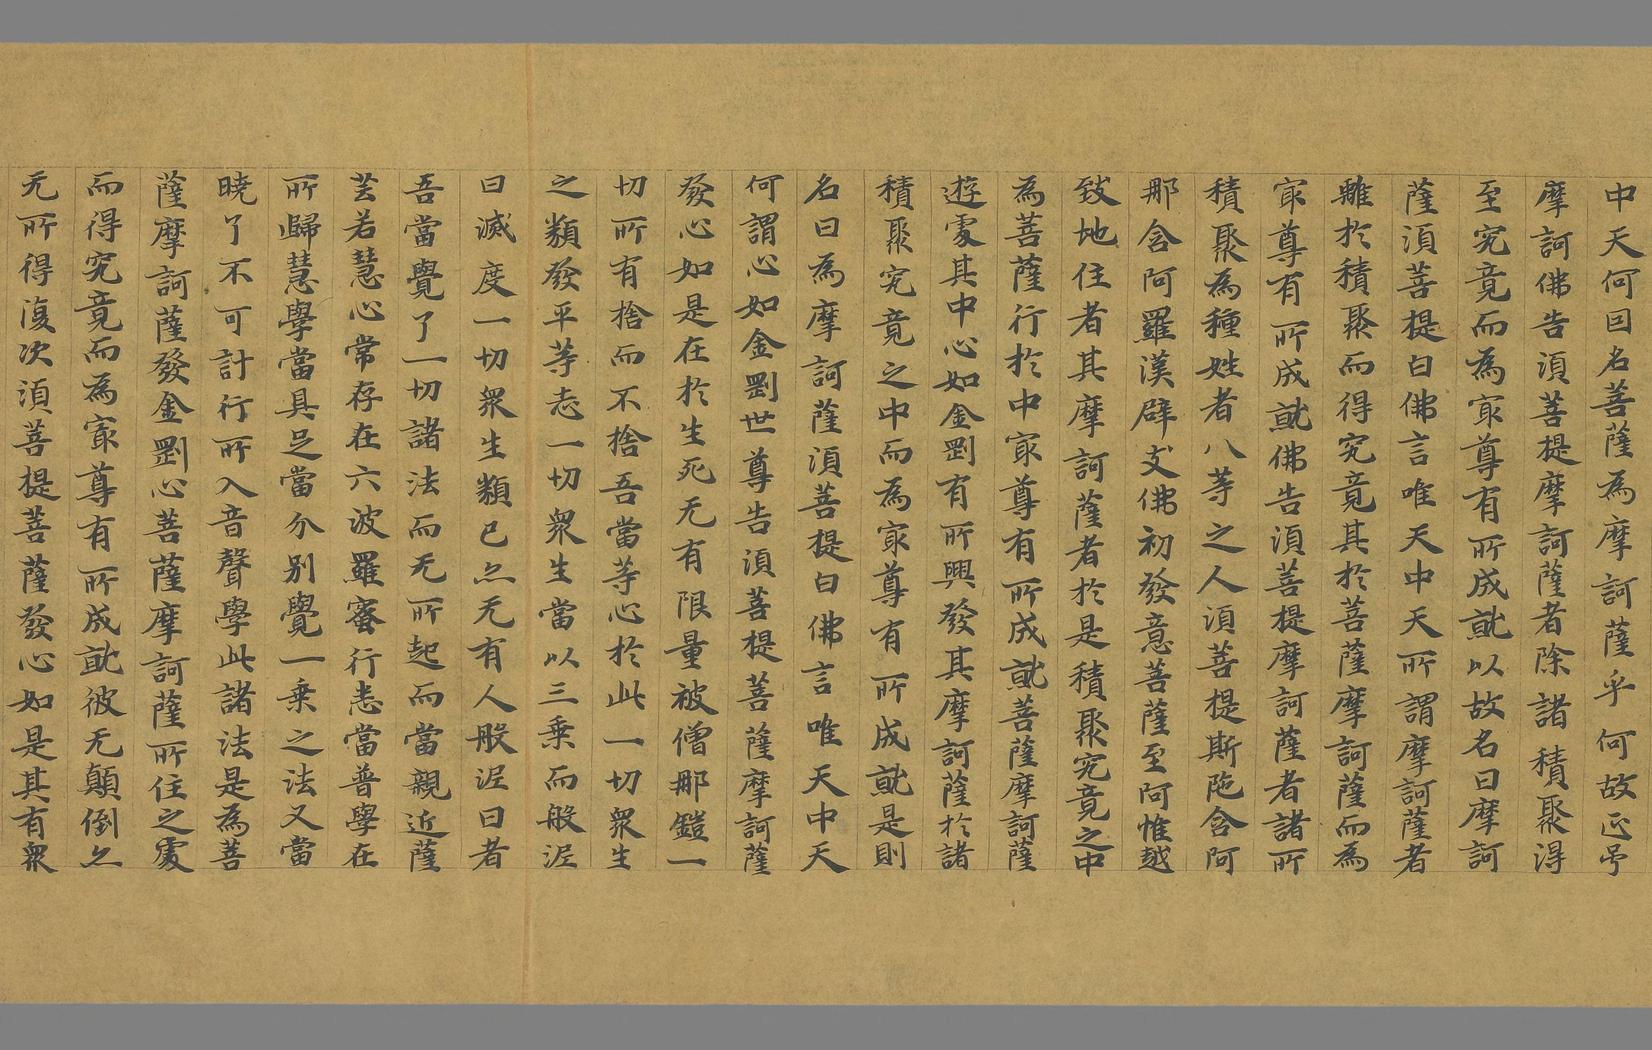 中天何因名菩薩為摩訶薩乎何故正号
摩訶佛告湏菩提摩訶薩者除諸積聚得
至究竟而為㝡尊有所成就以故名曰摩訶
薩湏菩提白佛言唯天中天所謂摩訶薩者
離於積聚而得究竟其於菩薩摩訶薩而為
㝡尊有所成就佛告湏菩提摩訶薩者諸所
積聚為種姓者八等之人湏菩提斯陁含阿
那含阿羅漢辟支佛初發意菩薩至阿惟越
致地住者其摩訶薩者於是積聚究竟之中
為菩薩行於中㝡尊有所成就菩薩摩訶薩
遊處其中心如金剛有所興發其摩訶薩於諸
積聚究竟之中而為㝡尊有所成就是則
名曰為摩訶薩湏菩提白佛言唯天中天
何謂心如金剛世尊告湏菩提菩薩摩訶薩
發心如是在於生死无有限量被僧那鎧一
切所有捨而不捨吾當等心於此一切眾生
之類發平等志一切眾生當以三乗而般泥
曰滅度一切眾生類已亦无有人般泥曰者
吾當覺了一切諸法而无所起而當親近薩
芸若慧心常存在六波羅蜜行恚當普學在
所歸慧學當具足當分别覺一乗之法又當
曉了不可計行所入音聲學此諸法是為菩
薩摩訶薩發金剛心菩薩摩訶薩所住之處
而得究竟而為㝡尊有所成就彼无顛倒亦
无所得復次湏菩提菩薩發心如是其有眾